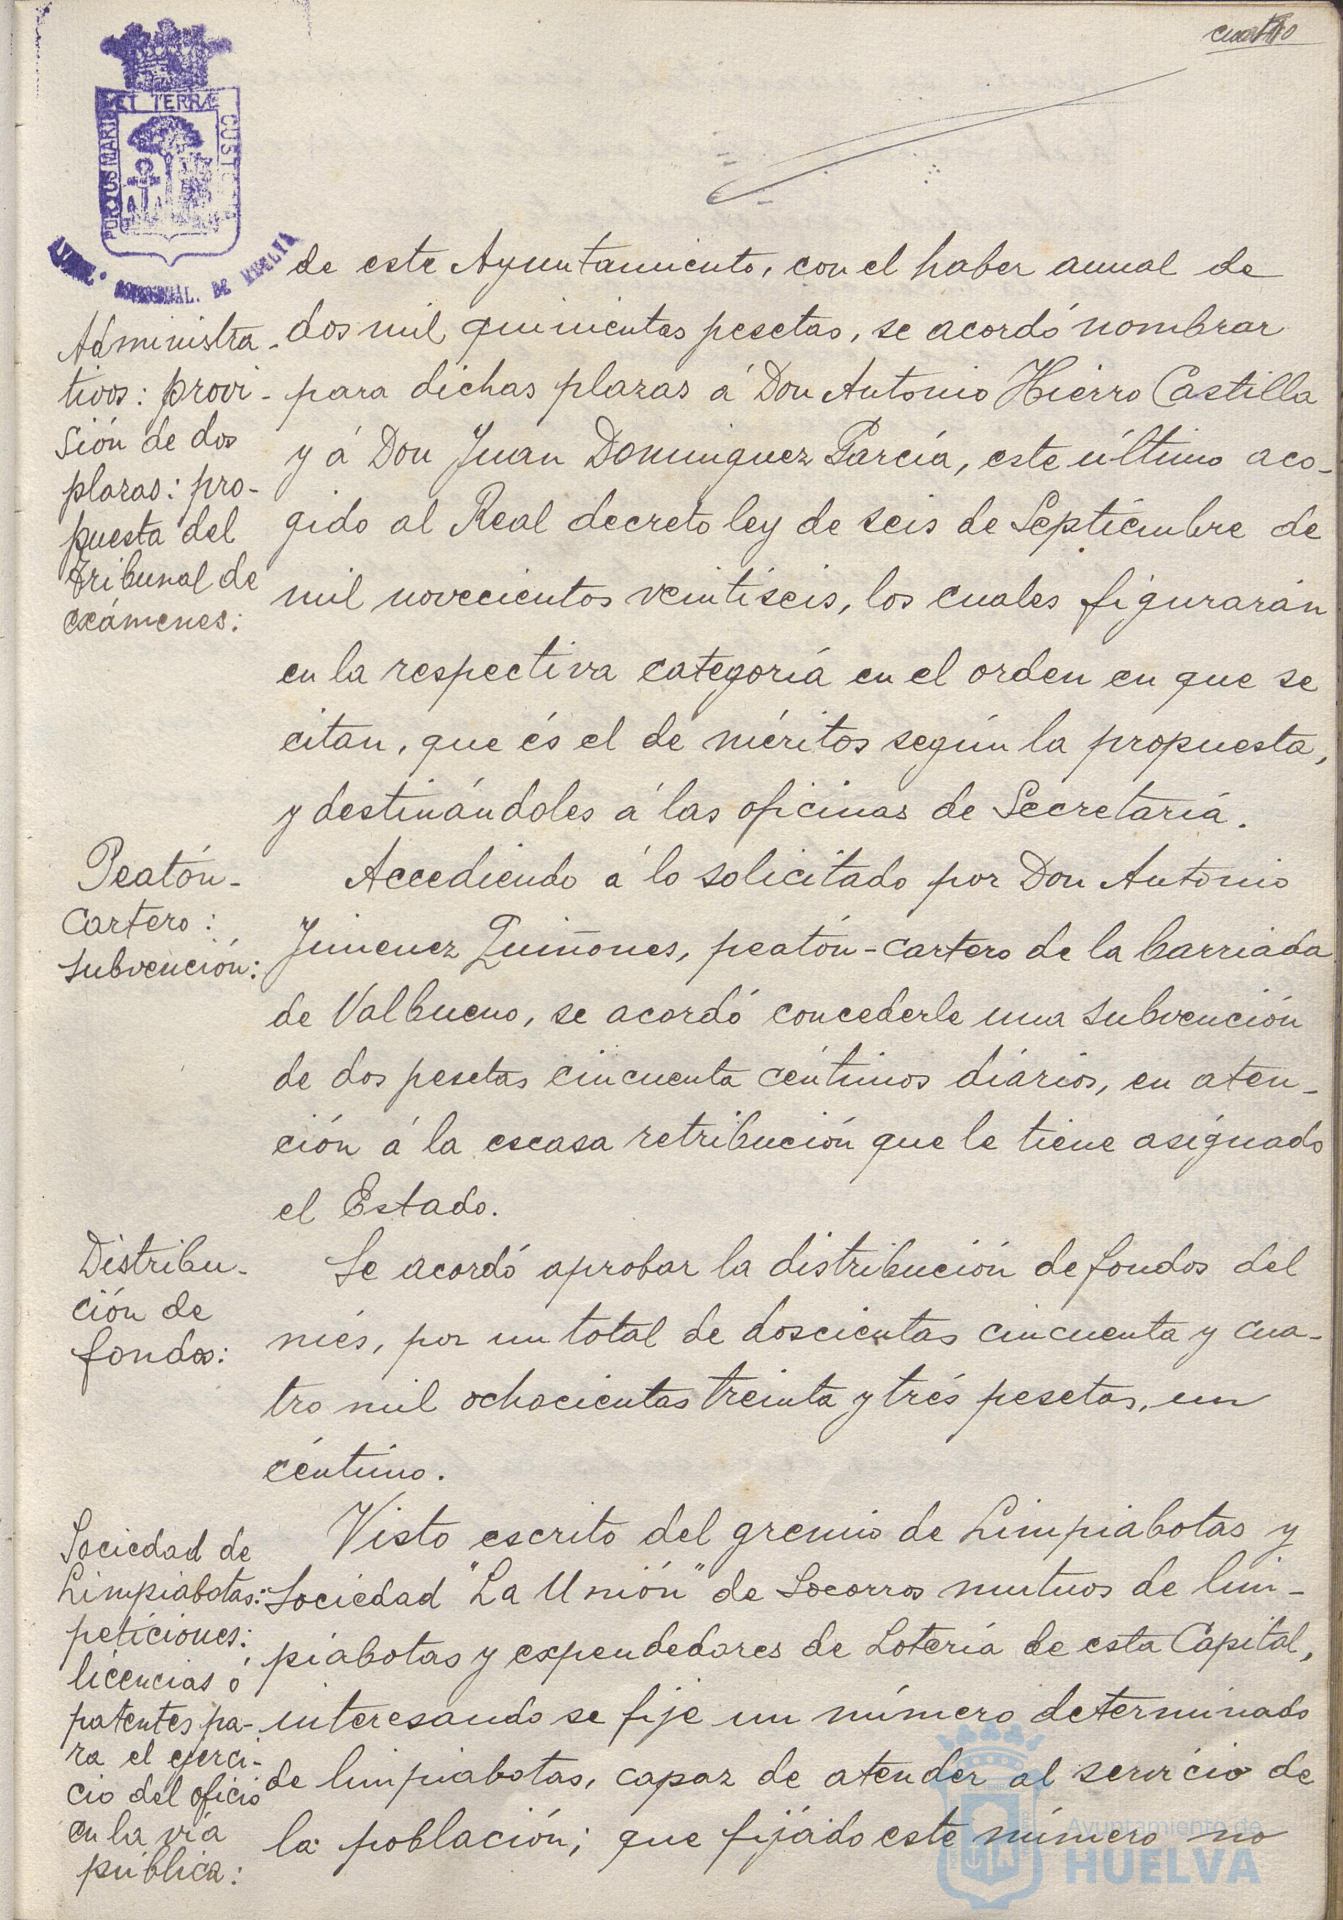 cuatro
PORTUS MARIS ET TERRÆ CUSTODIA
DE HUELVA
de este Ayuntamiento, con el haber anual de
dos mil quinientas pesetas, se acordó nombrar
para dichas plazas á Don Antonio Hierro Castilla
y á Don Juan Dominguez García, este último aco-
gido al Real decreto ley de seis de Septiémbre de
mil novecientos veintiséis, los cuales figurarán
en la respectiva categoría en el orden en que se
citan, que és el de méritos según la propuesta,
y destinándoles á las oficinas de Secretaría.
Administra-
tivos: provi-
sión de dos
plazas: pro-
puesta del
tribunal de
exámenes:
Accediendo á lo solicitado por Don Antonio
Jimenez Quiñones, peatón-cartero de la barriada
de Valbueno, se acordó concederle una subvención
de dos pesetas cincuenta céntimos diários, en aten-
ción á la escasa retribución que le tiene asignado
el Estado.
Peatón-
cartero:
subvención:
Se acordó aprobar la distribución de fondos del
més, por un total de doscientas cincuenta y cua-
tro mil ochocientas treinta y trés pesetas, un
céntimo.
Distribu-
ción de
fondos:
Visto escrito del gremio de Limpiabotas y
Sociedad "La Unión" de Socorros mutuos de lim-
piabotas y expendedores de Lotería de esta Capital,
interesando se fije un número determinado
de limpiabotas, capaz de atender al servicio de
la población; que fijado este número no
Sociedad de
Limpiabotas:
peticiones:
licencias ó
patentes pa-
ra el ejerci-
cio del oficio
en la vía
pública:
Ayuntamiento de
HUELVA